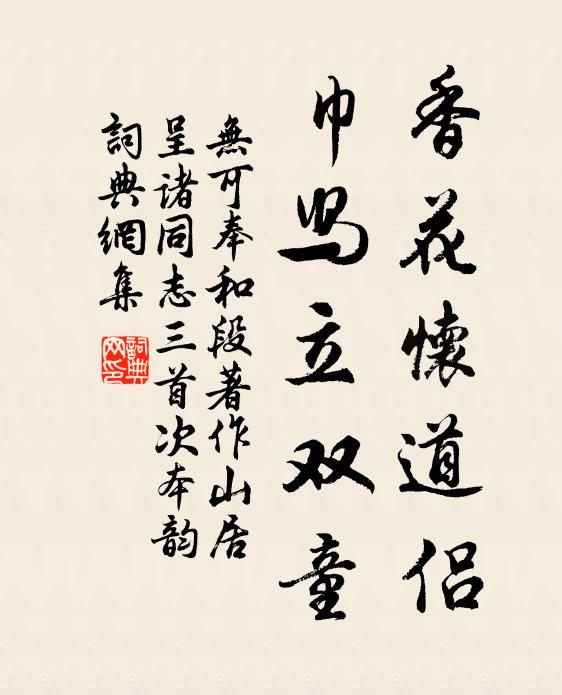 香花懷道侣
巾舄立双童
無可奉和段著作山居
呈诸同志三首次本韵
詞典網集
詞典
网印